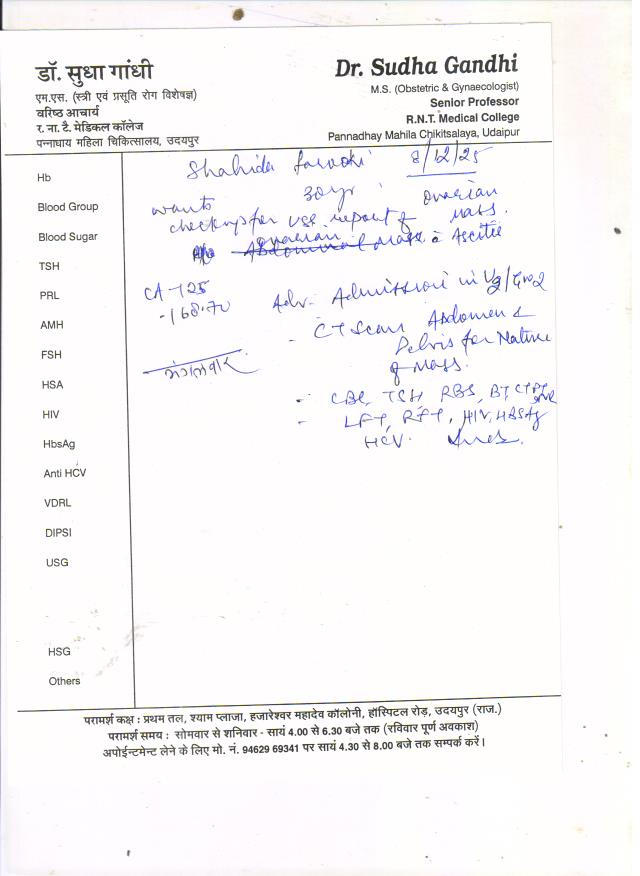 डॉ. सुधा गांधी
एम.एस. (स्त्री एवं प्रसूति रोग विशेषज्ञ)
वरिष्ठ आचार्य
र. ना. टै. मेडिकल कॉलेज
पन्नाधाय महिला चिकित्सालय, उदयपुर
Dr. Sudha Gandhi
M.S. (Obstetric & Gynaecologist)
Senior Professor
R.N.T. Medical College
Pannadhay Mahila Chikitsalaya, Udaipur
Hb
Blood Group
Blood Sugar
TSH
PRL
AMH
FSH
HSA
HIV
HbsAg
Anti HCV
VDRL
DIPSI
USG
HSG
Others
Shahida 8/12/25
30yr
wants ovarian
checkup for USG report of mass.
ovarian
Abdominal mass c Ascites
CA-125
-168.70
Adv. Admission in
- CT Scan Abdomen &
Pelvis for Nature
of Mass.
मंगलवार
- CBC, TSH, RBS, BT, CT, PT,
INR
- LFT, RFT, HIV, HBSAg
HCV. Urea.
परामर्श कक्ष : प्रथम तल, श्याम प्लाजा, हजारेश्वर महादेव कॉलोनी, हॉस्पिटल रोड़, उदयपुर (राज.)
परामर्श समय : सोमवार से शनिवार - सायं 4.00 से 6.30 बजे तक (रविवार पूर्ण अवकाश)
अपोईन्टमेन्ट लेने के लिए मो. नं. 94629 69341 पर सायं 4.30 से 8.00 बजे तक सम्पर्क करें।